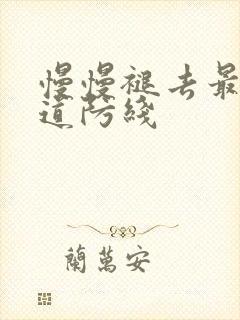 慢慢褪去最
道防綫
蘭萬安